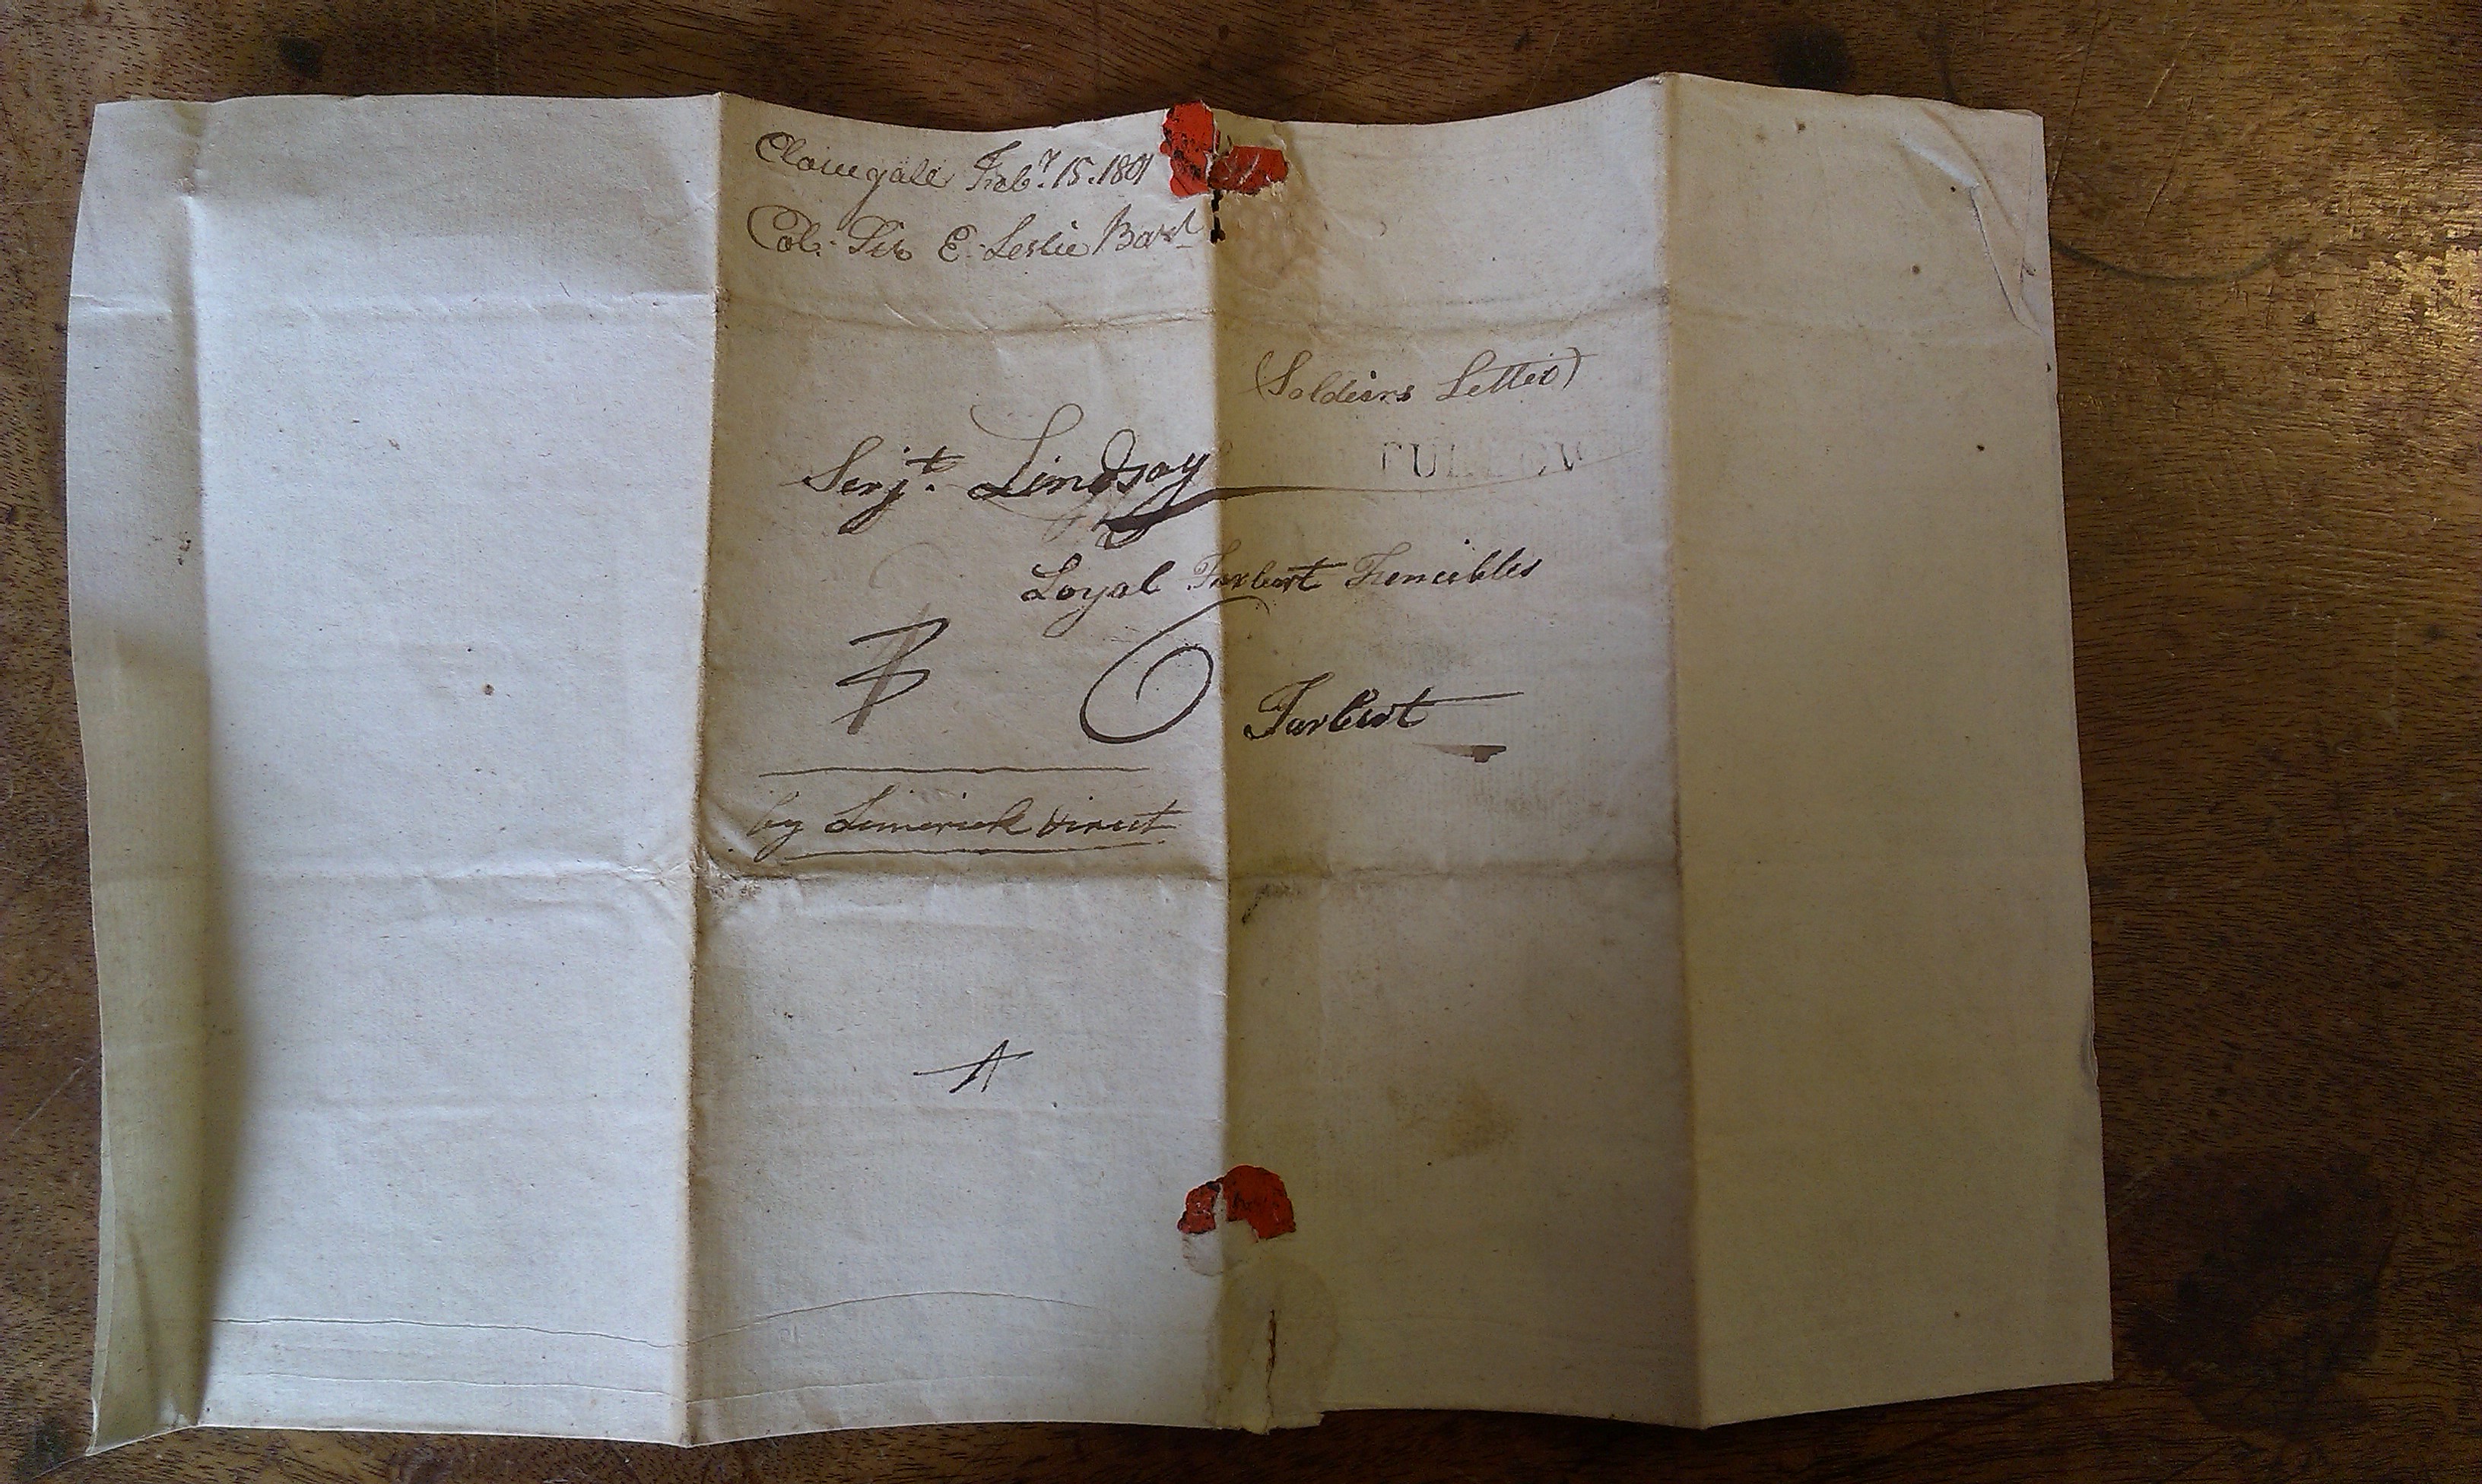 Clonegall Feby. 15. 1801
Col: Sir E: Leslie Bart
(Soldiers Letter)
TULLOW
Serjt. Lindsay
Loyal Tarbert Fencibles
6
Tarbert
by Limerick direct